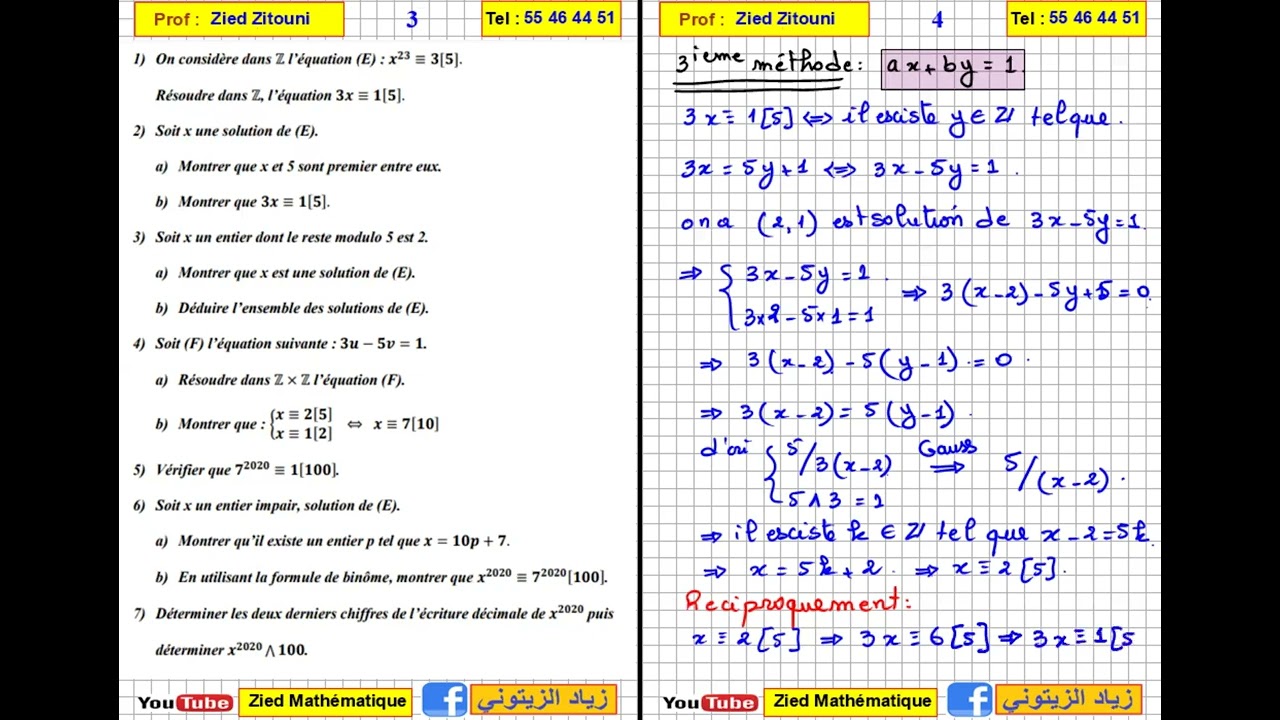 Prof : Zied Zitouni
3
Tel : 55 46 44 51
1) On considère dans ℤ l'équation (E) : x²³ ≡ 3[5].
Résoudre dans ℤ, l'équation 3x ≡ 1[5].
2) Soit x une solution de (E).
a) Montrer que x et 5 sont premier entre eux.
b) Montrer que 3x ≡ 1[5].
3) Soit x un entier dont le reste modulo 5 est 2.
a) Montrer que x est une solution de (E).
b) Déduire l'ensemble des solutions de (E).
4) Soit (F) l'équation suivante : 3u − 5v = 1.
a) Résoudre dans ℤ × ℤ l'équation (F).
b) Montrer que : {x ≡ 2[5] x ≡ 1[2] ⇔ x ≡ 7[10]
5) Vérifier que 7²⁰²⁰ ≡ 1[100].
6) Soit x un entier impair, solution de (E).
a) Montrer qu'il existe un entier p tel que x = 10p + 7.
b) En utilisant la formule de binôme, montrer que x²⁰²⁰ ≡ 7²⁰²⁰[100].
7) Déterminer les deux derniers chiffres de l'écriture décimale de x²⁰²⁰ puis
déterminer x²⁰²⁰ ∧ 100.
You Tube
Zied Mathématique
f
زياد الزيتوني
Prof : Zied Zitouni
4
Tel : 55 46 44 51
3ieme méthode: ax+by=1
3x≡1[5] ⇔ il esciste y∈ℤ tel que.
3x=5y+1 ⇔ 3x-5y=1.
on a (2,1) est solution de 3x-5y=1.
⇒ {3x-5y=1.
3x2-5x1=1
⇒ 3(x-2)-5y+5=0.
⇒ 3(x-2)-5(y-1)=0.
⇒ 3(x-2)=5(y-1).
d'où {5/3(x-2) Gauss ⇒ 5/(x-2).
5∧3=1
⇒ il esciste k∈ℤ tel que x-2=5k.
⇒ x=5k+2. ⇒ x≡2[5].
Reciproquement:
x≡2[5] ⇒ 3x≡6[5] ⇒ 3x≡1[5
You Tube
Zied Mathématique
f
زياد الزيتوني